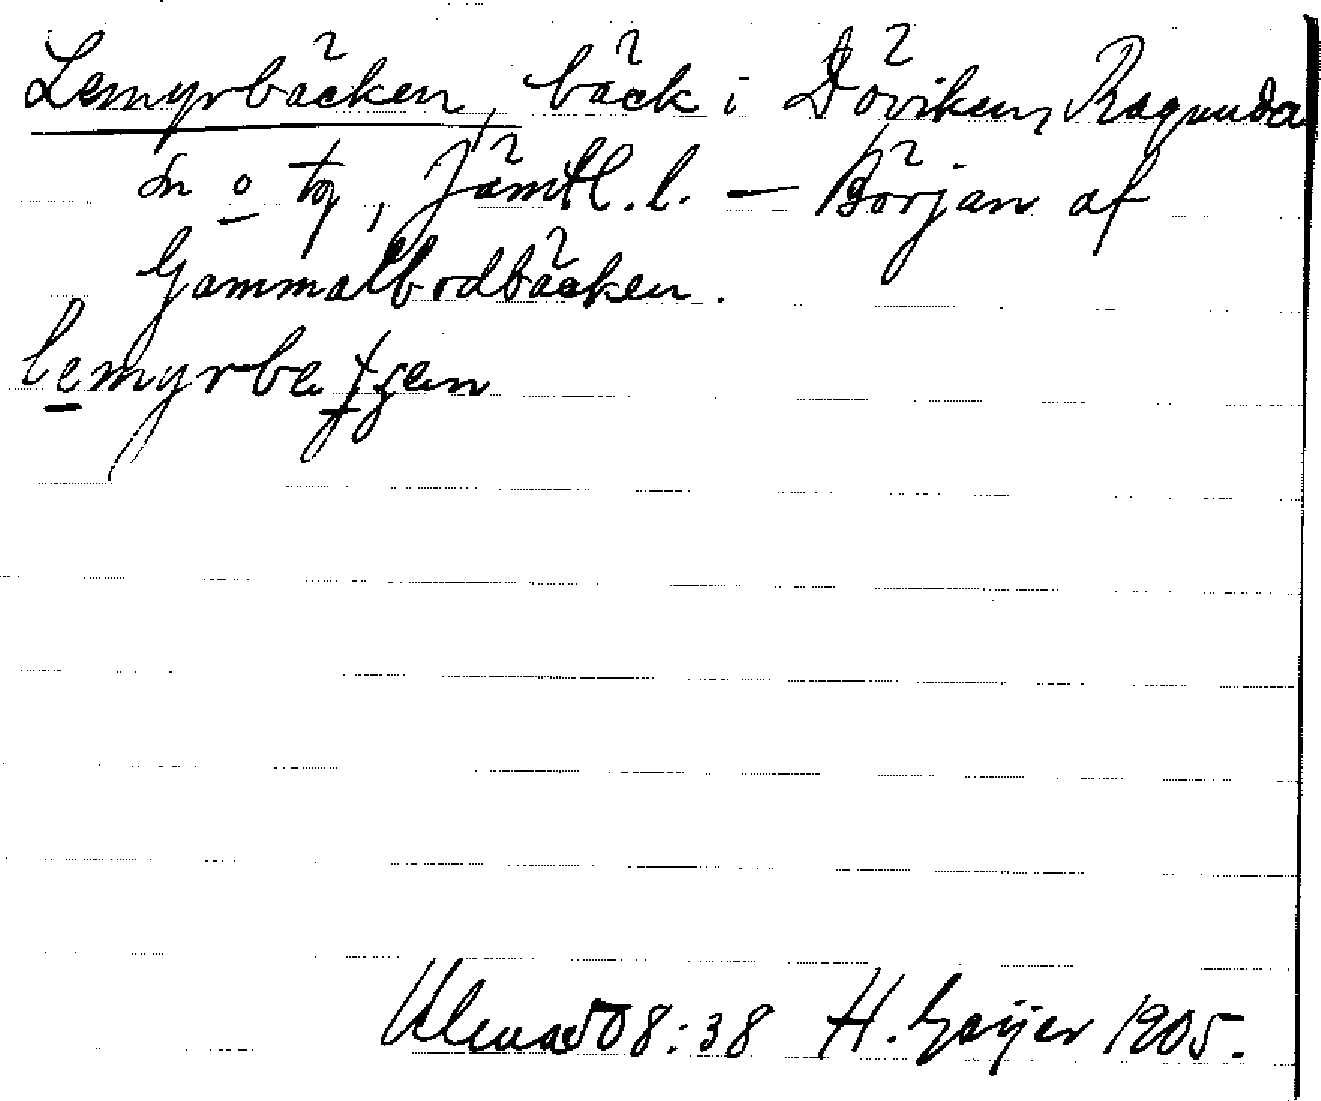 Lemyrbäcken, bäck i Döviken, Ragunda
sn o tg, Jämtl. l. — Början af
Gammalbodbäcken.
lemyrbe
508:38 H. Geijer 1905.